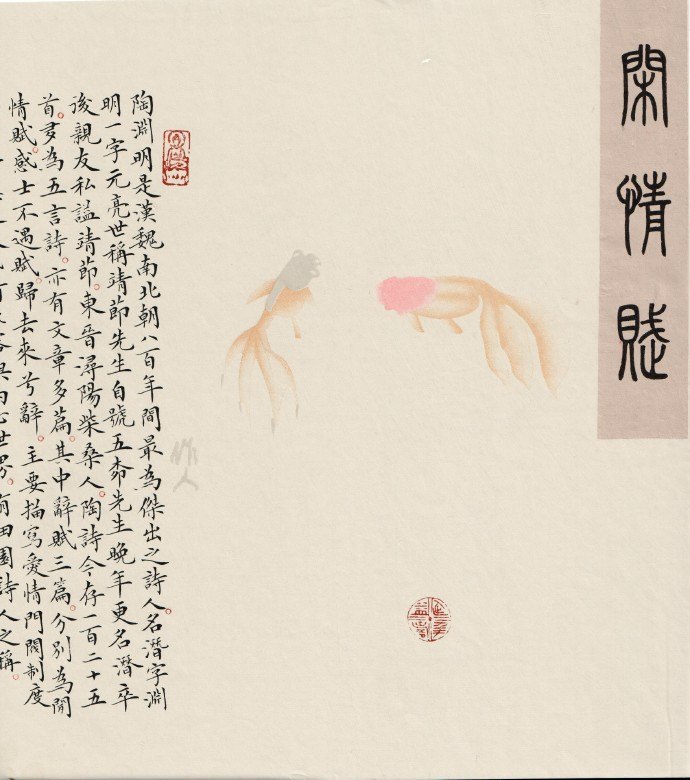 閑情賦
陶淵明是漢魏南北朝八百年間最為傑出之詩人。名潛字淵
明一字元亮世稱靖節先生自號五柳先生晚年更名潛卒
後親友私謚靖節。東晉潯陽柴桑人。陶詩今存一百二十五
首。多為五言詩。亦有文章多篇。其中辭賦三篇。分別為閒
情賦。感士不遇賦歸去來兮辭。主要描寫愛情門閥制度
世界。有田園詩人之稱。